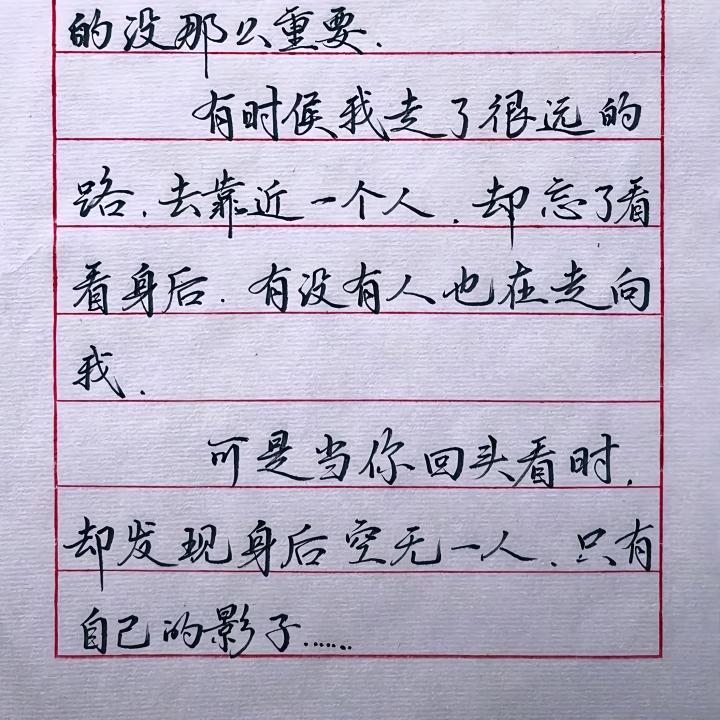 的没那么重要.
有时候我走了很远的
路.去靠近一个人.却忘了看
看身后.有没有人也在走向
我.
可是当你回头看时.
却发现身后空无一人.只有
自己的影子……